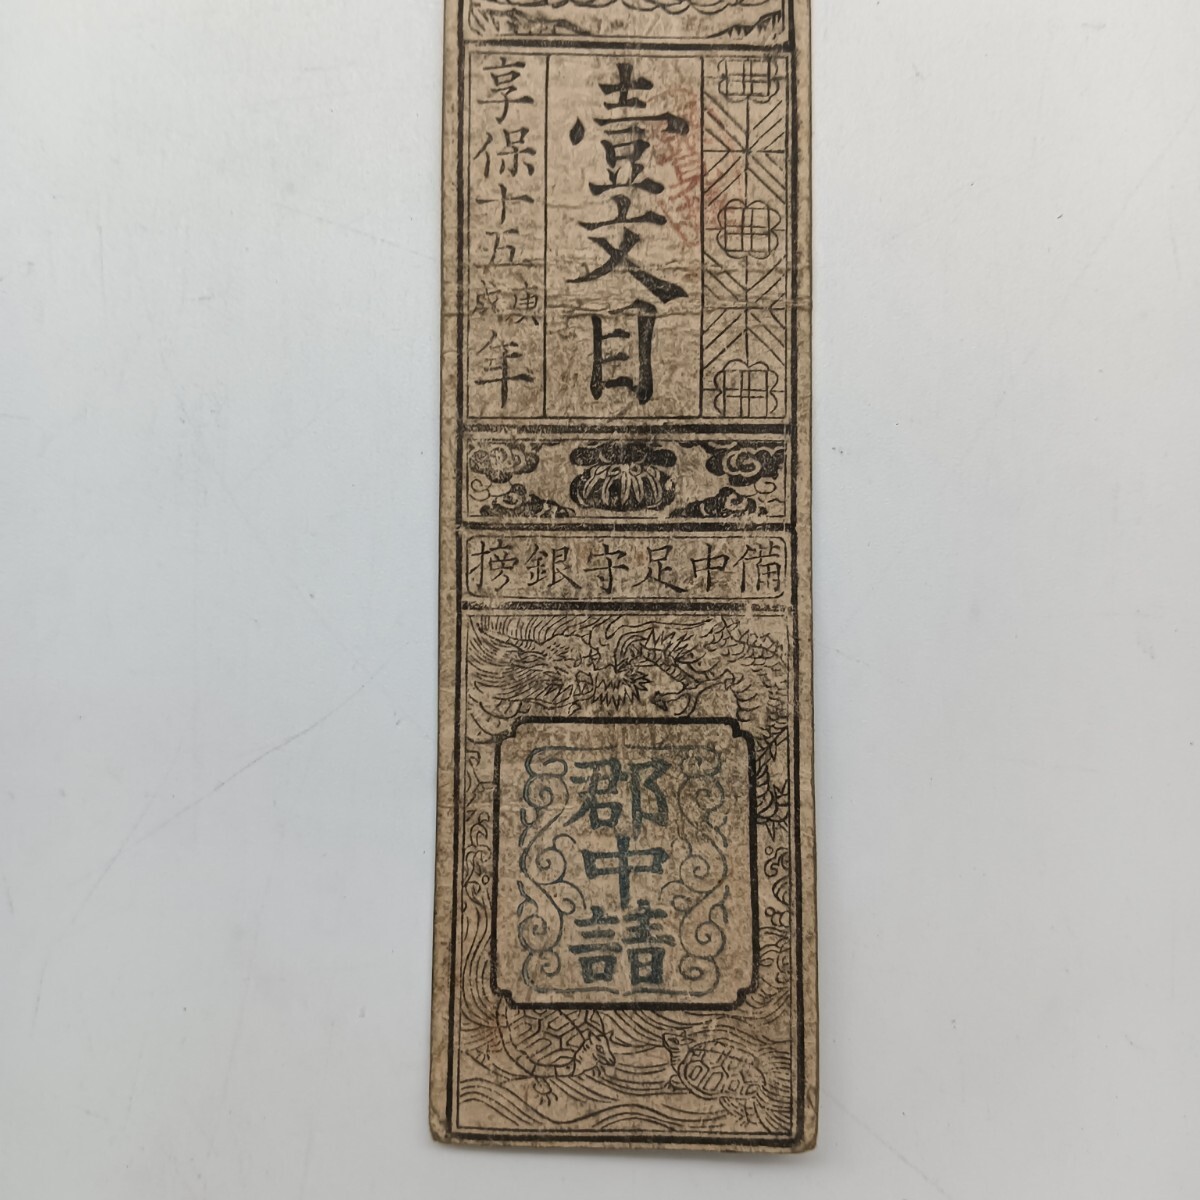 壹文目
享保十五庚戌年
備中足守銀札
郡中請